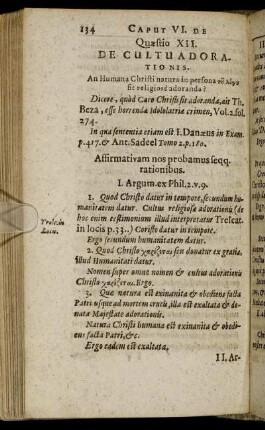 134 CAPUT VI. DE
Quæstio XII.
DE CULTU ADORA-
TIONIS.
An Humana Christi natura in persona τȣ͂ λόγȣ
sit religiosè adoranda?
Dicere, quòd Caro Christi sit adoranda, ait Th.
Beza, esse horrenda Idololatriæ crimen, Vol. 2. fol.
274.
In qua sententia etiam est I. Danæus in Exam.
p. 417. & Ant. Sadeel Tomo 2. p. 180.
Affirmativam nos probamus seqq.
rationibus.
I. Argum. ex Phil. 2. v. 9.
1. Quod Christo datur in tempore, secundum hu-
manitatem datur. Cultus religiosæ adorationis (de
hoc enim testimonium illud interpretatur Trelcat.
in locis p. 33..) Christo datur in tempore.
Trelca. in
Locis.
Ergo secundum humanitatem datur.
2. Quod Christo donatur ex gratia.
Illud Humanitati datur.
Nomen super omne nomen & cultus adorationis
Christo Ergo.
3. Quæ natura est exinanita & obediens facta
Patri usque ad mortem crucis, illa est exaltata & do-
nata Majestate adorationis.
Natura Christi humana est exinanita & obedi-
ens facta Patri, &c.
Ergo eadem est exaltata.
II. Ar-